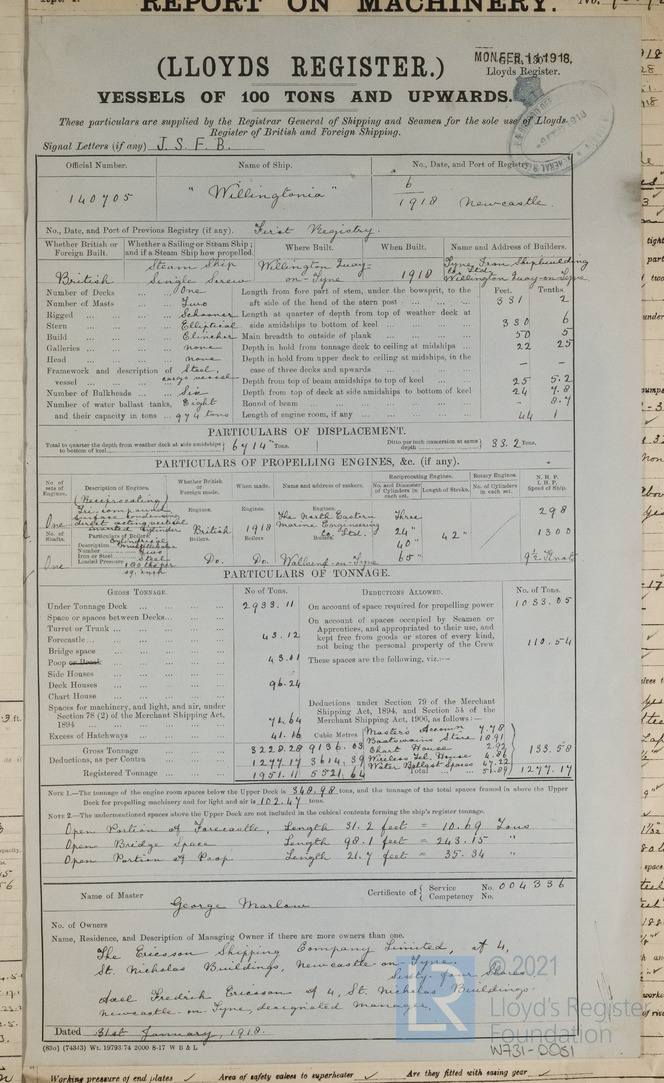 REPORT ON MACHINERY. No.
(LLOYDS REGISTER.)
MON. FEB. 11 1918,
Lloyds Register.
VESSELS OF 100 TONS AND UPWARDS.
These particulars are supplied by the Registrar General of Shipping and Seamen for the sole use of Lloyds
Register of British and Foreign Shipping.
Signal Letters (if any) J. S. F. B.
Official Number. Name of Ship. No., Date, and Port of Registry.
140705 "Willingtonia" 6/1918 Newcastle.
No., Date, and Port of Previous Registry (if any). First Registry.
Whether British or Foreign Built. Whether a Sailing or Steam Ship; and if a Steam Ship how propelled. Where Built. When Built. Name and Address of Builders.
British Steam Ship Single Screw Willington Quay-on-Tyne 1918 Tyne Iron Shipbuilding Co. Ltd. Willington Quay-on-Tyne
Number of Decks One Length from fore part of stem, under the bowsprit, to the aft side of the head of the stern post Feet. 331 Tenths. 2
Number of Masts Two
Rigged Schooner Length at quarter of depth from top of weather deck at side amidships to bottom of keel 330 6
Stern Elliptical
Build Clincher Main breadth to outside of plank 50 5
Galleries none Depth in hold from tonnage deck to ceiling at midships 22 25
Head none Depth in hold from upper deck to ceiling at midships, in the case of three decks and upwards – –
Framework and description of vessel Steel, cargo vessel Depth from top of beam amidships to top of keel 25 5.2
Number of Bulkheads Six Depth from top of deck at side amidships to bottom of keel 24 7.8
Number of water ballast tanks, and their capacity in tons Eight 974 tons Round of beam – 8.7
Length of engine room, if any 44 1
PARTICULARS OF DISPLACEMENT.
Total to quarter the depth from weather deck at side amidships to bottom of keel 6714 Tons. Ditto per inch immersion at same depth 33.2 Tons.
PARTICULARS OF PROPELLING ENGINES, &c. (if any).
No. of sets of Engines. Description of Engines. Whether British or Foreign made. When made. Name and address of makers. Reciprocating Engines. Rotary Engines. N.H.P. I.H.P. Speed of Ship.
No. and Diameter of Cylinders in each set. Length of Stroke. No. of Cylinders in each set.
One (Reciprocating) Tri-compound surface condensing direct acting vertical inverted cylinder Engines. British Engines. 1918 Engines. The North Eastern Marine Engineering Co. Ltd. Three 24" 40" 65" 42" 298 1300 9½ Knots
No. of Shafts. One
Particulars of Boilers. Description Cylindrical Multitubular Number Two Iron or Steel Steel Loaded Pressure 180 lbs per sq. inch Boilers. Do. Boilers Do. Boilers. Wallsend-on-Tyne
PARTICULARS OF TONNAGE.
GROSS TONNAGE. No of Tons. DEDUCTIONS ALLOWED. No. of Tons.
Under Tonnage Deck 2933.11 On account of space required for propelling power 1033.05
Space or spaces between Decks On account of spaces occupied by Seamen or Apprentices, and appropriated to their use, and kept free from goods or stores of every kind, not being the personal property of the Crew 110.54
Turret or Trunk
Forecastle 43.12
Bridge space
Poop or Break 43.01 These spaces are the following, viz:—
Side Houses
Deck Houses 96.24
Chart House
Spaces for machinery, and light, and air, under Section 78 (2) of the Merchant Shipping Act, 1894 71.64 Deductions under Section 79 of the Merchant Shipping Act, 1894, and Section 54 of the Merchant Shipping Act, 1906, as follows:—
Excess of Hatchways 41.16 Cubic Metres Master's Accomn 7.78
Boatswains Store 10.91
Gross Tonnage 3228.28 9136.03 Chart House 2.92 133.58
Deductions, as per Contra 1277.17 3614.39 Wireless Tel. House 4.86
Water Ballast Spaces 47.22
Registered Tonnage 1951.11 5521.64 Total 1277.17
NOTE 1.—The tonnage of the engine room spaces below the Upper Deck is 348.98 tons, and the tonnage of the total spaces framed in above the Upper
Deck for propelling machinery and for light and air is 102.47 tons.
NOTE 2.—The undermentioned spaces above the Upper Deck are not included in the cubical contents forming the ship's register tonnage.
Open Portion of Forecastle, Length 31.2 feet = 10.69 Tons
Open Bridge Space Length 98.1 feet = 243.15 "
Open Portion of Poop. Length 21.7 feet = 35.34 "
Name of Master George Marlow Certificate of Service Competency No. 004336 No.
No. of Owners
Name, Residence, and Description of Managing Owner if there are more owners than one.
The Ericsson Shipping Company Limited, of 4,
St. Nicholas Buildings, Newcastle-on-Tyne.
Sixty four Shares
Axel Fredrik Ericsson of 4, St. Nicholas Buildings.
Newcastle-on-Tyne, designated manager.
Dated 31st January, 1918.
(83o) (74343) Wt. 19793.74 2000 8-17 W B & L
© 2021
LR
Lloyd's Register
Foundation
W731-0051
Working pressure of end plates Area of safety valves to superheater Are they fitted with easing gear